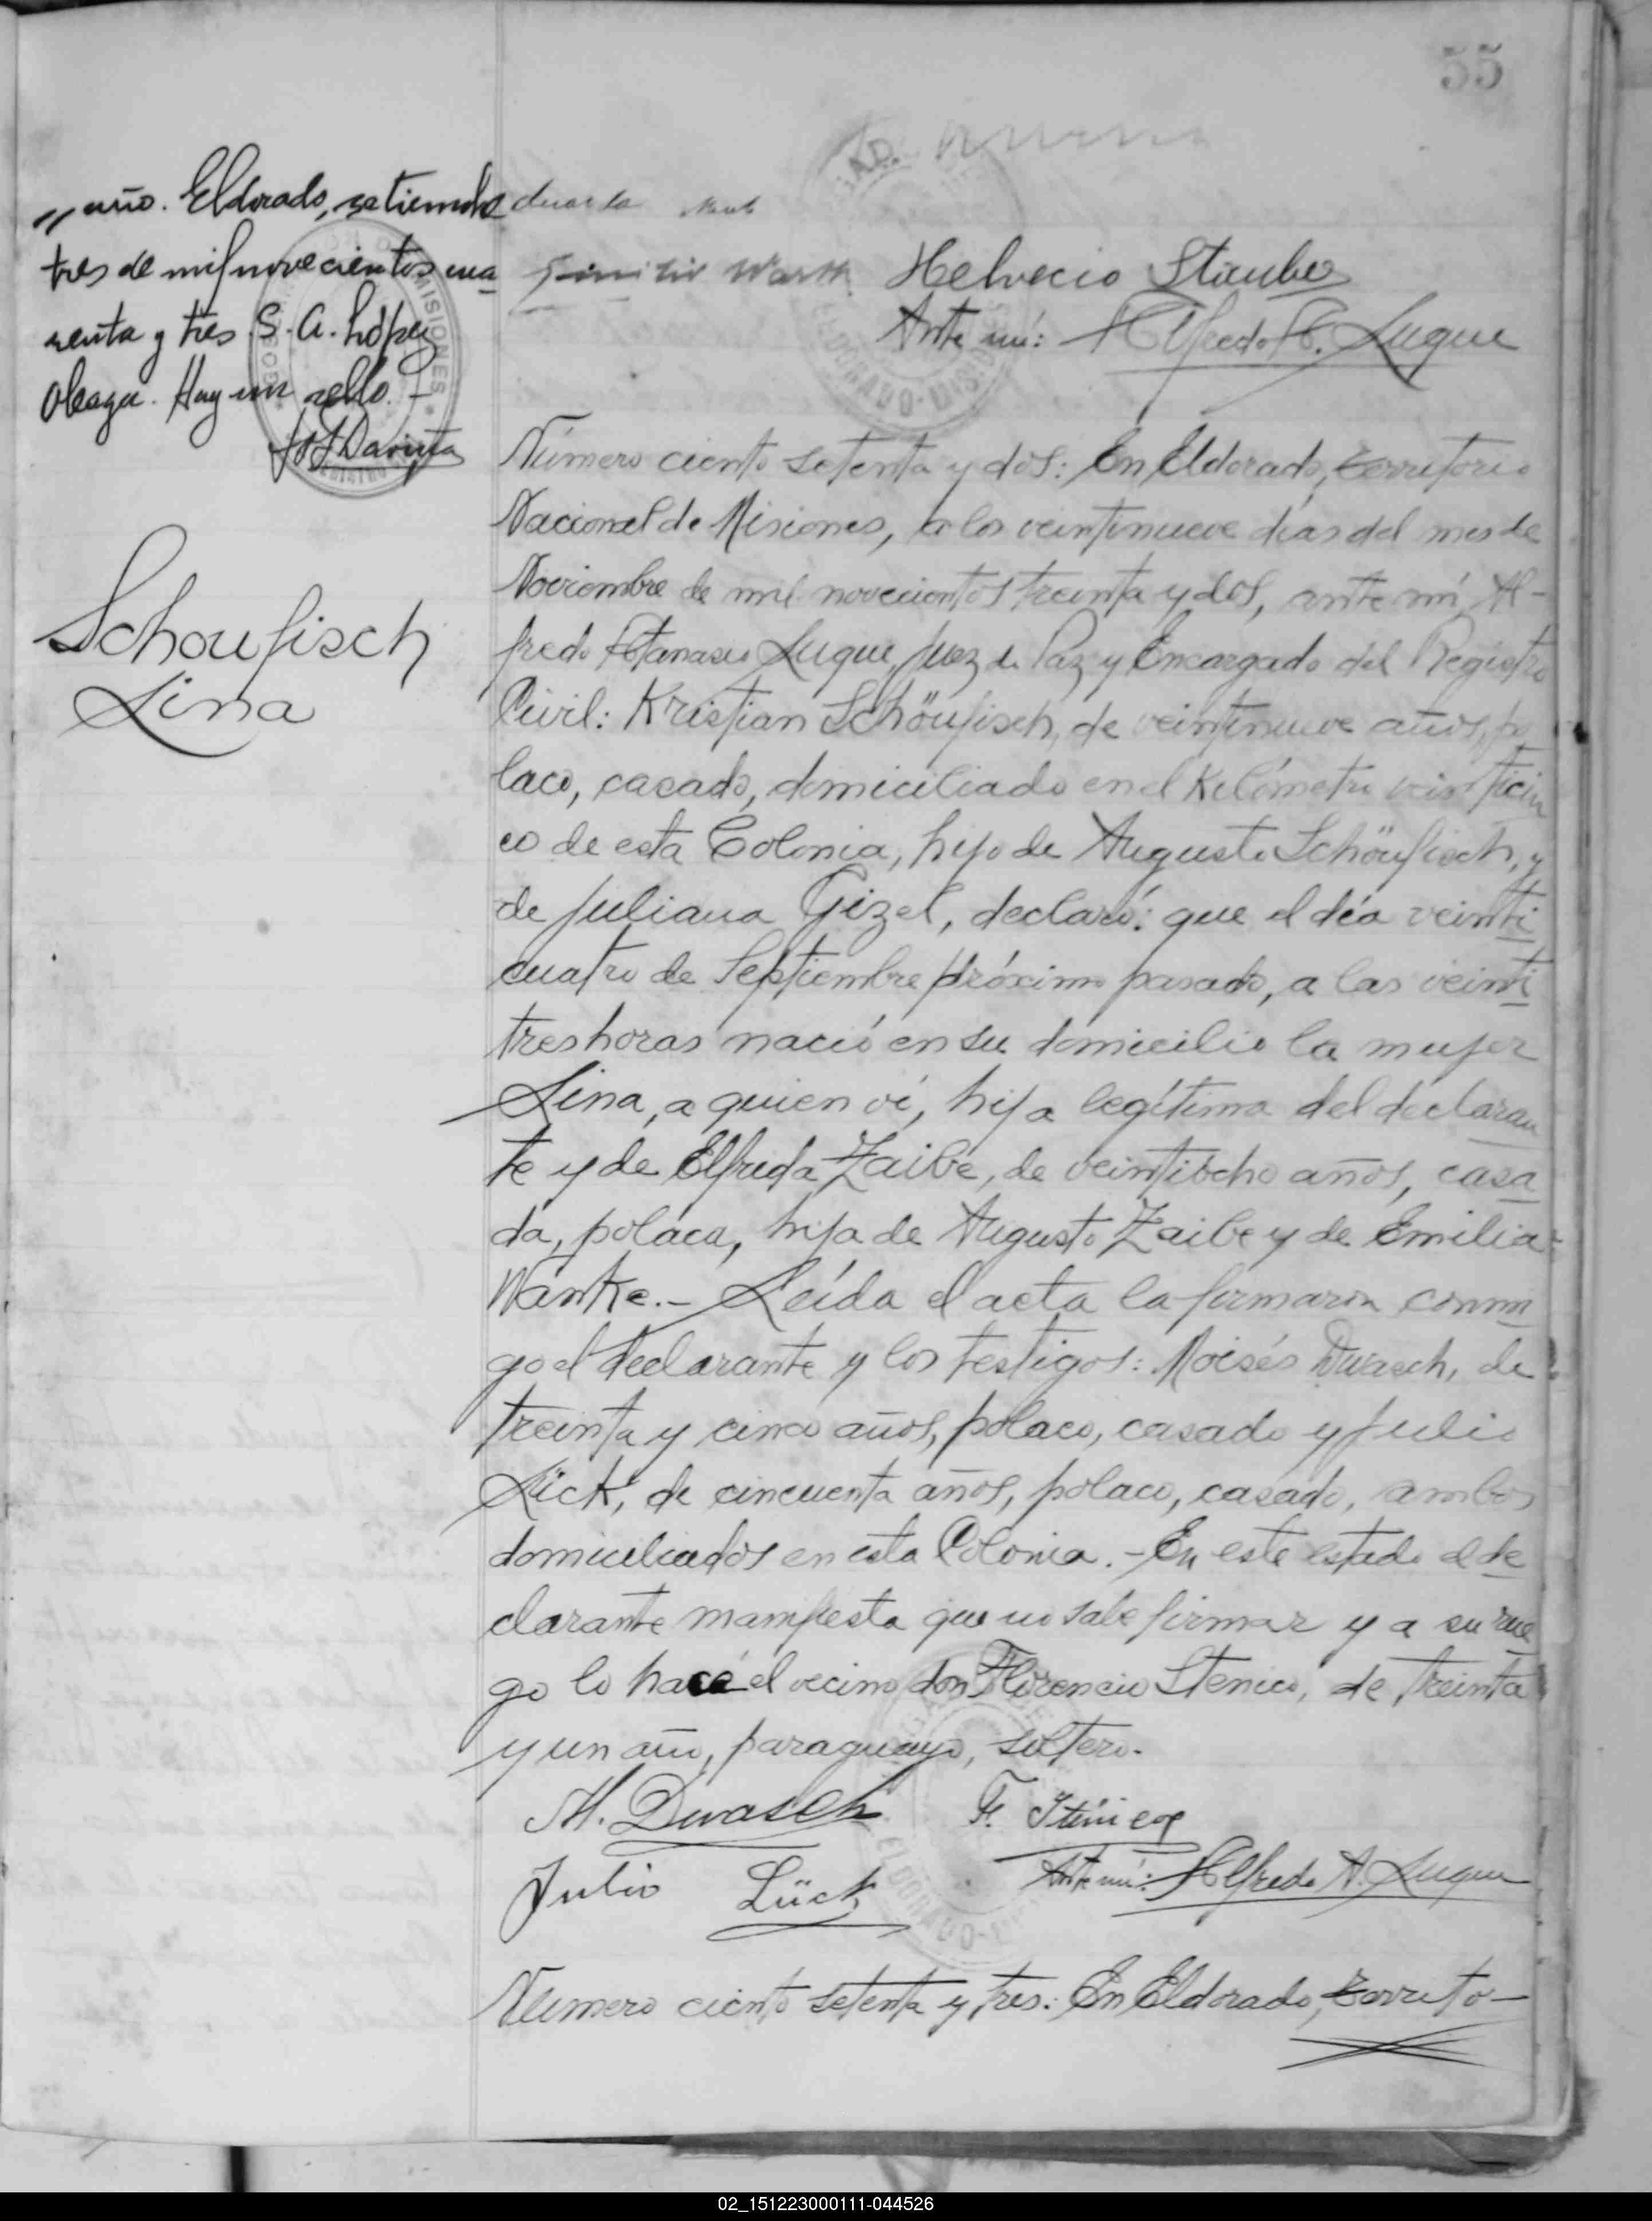 55
" año. Eldorado, setiembre
tres de mil novecientos cua
renta y tres S. A. López
Oleaga. Hay un sello. -
Helvecio Stauber
Ante mí: Alfredo A. Luque
Schoufisch
Lina
Número ciento setenta y dos: En Eldorado, Territorio
Nacional de Misiones, a los veintinueve días del mes de
Noviembre de mil novecientos treinta y dos, ante mí, Al-
fredo Atanasio Luque, Juez de Paz y Encargado del Registro
Civil: Kristian Schöufisch, de veintinueve años, po
laco, casado, domiciliado en el Kilómetro veinticin
co de esta Colonia, hijo de Augusto Schöufisch, y
de Juliana Gizel, declaró: que el día veinti
cuatro de Septiembre próximo pasado, a las veinti
tres horas nació en su domicilio la mujer
Lina, a quien ví, hija legítima del declaran
te y de Elfrida Zaibe, de veintiocho años, casa
da, polaca, hija de Augusto Zaibe y de Emilia
Wanke.- Leída el acta la firmaron conmi
go el declarante y los testigos: Moisés Dwasch, de
treinta y cinco años, polaco, casado y Julio
Lück, de cincuenta años, polaco, casado, ambos
domiciliados en esta Colonia.- En este estado el de
clarante manifiesta que no sabe firmar y a su rue
go lo hace el vecino don Florencio Stenico, de treinta
y un año, paraguayo, soltero.
M. Dwasch F. Stenico
Julio Lück Ante mí: Alfredo A. Luque
Número ciento setenta y tres: En Eldorado, Territo-
02_151223000111-044526